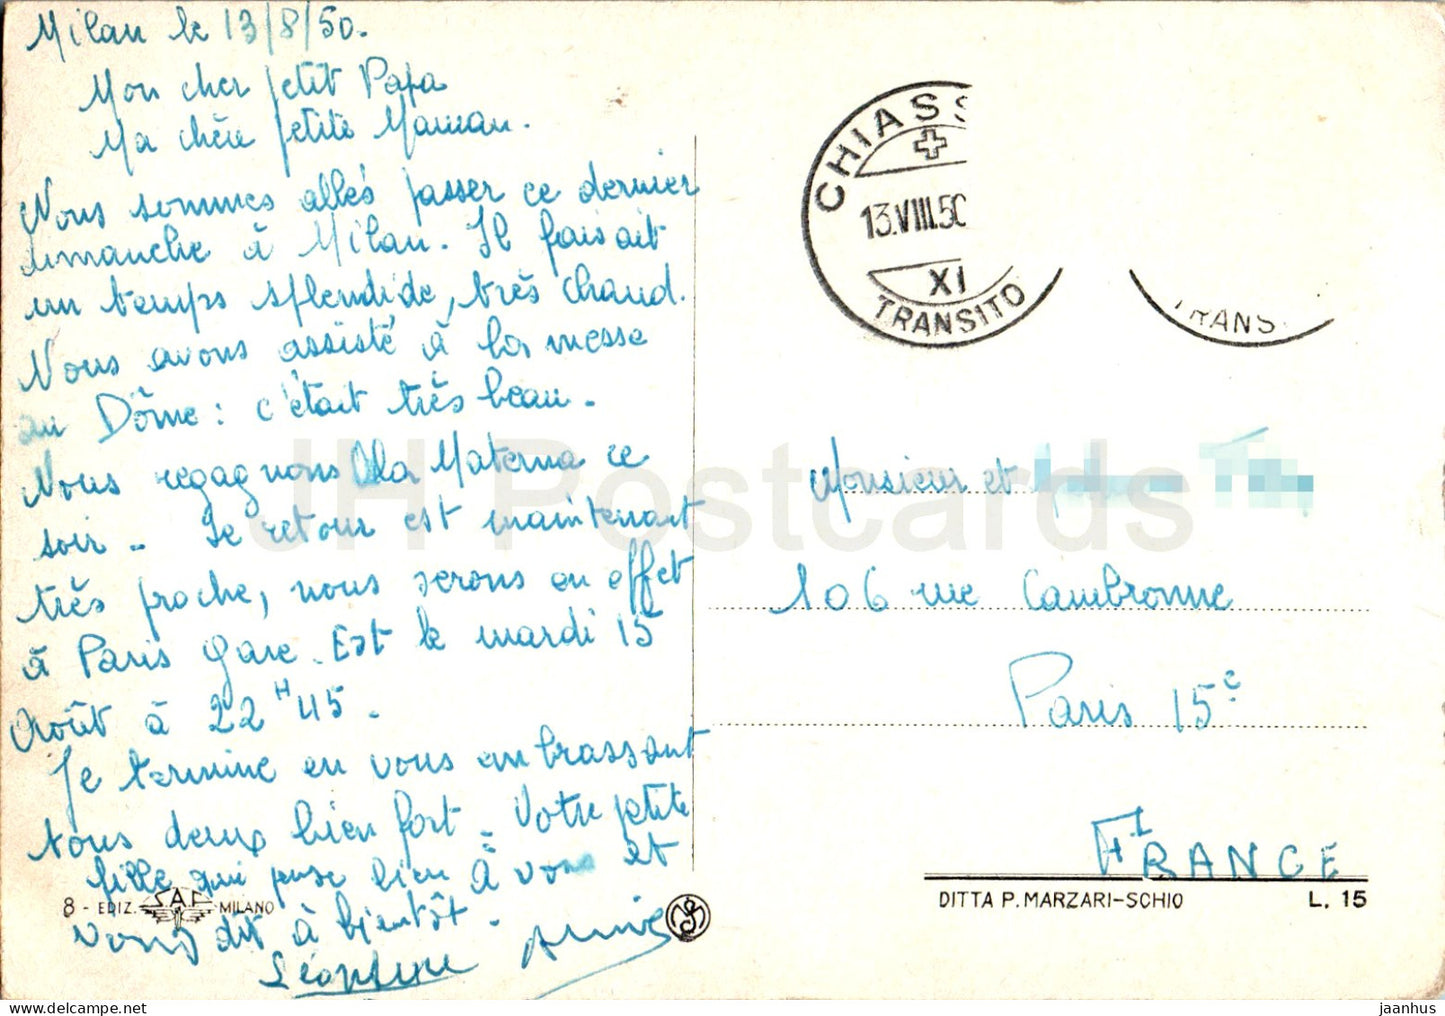 Milan le 13/8/50.
Mon cher petit Papa
Ma chère petite Maman.
Nous sommes allés passer ce dernier
dimanche à Milan. Il faisait
un temps splendide, très chaud.
Nous avons assisté à la messe
au Dôme : c'était très beau.
Nous regagnons la Materna ce
soir. Le retour est maintenant
très proche, nous serons en effet
à Paris Gare Est le mardi 15
Août à 22 H 45.
Je termine en vous embrassant
tous deux bien fort. Votre petite
fille qui pense bien à vous et
vous dit à bientôt.
8 - EDIZ. S.A.F. MILANO
CHIASS
13.VIII.50
XI
TRANSITO
TRANS
Monsieur et
106 rue Cambronne
Paris 15e
FRANCE
DITTA P. MARZARI-SCHIO L. 15
JH Postcards
jaanhus
hippostcard.com